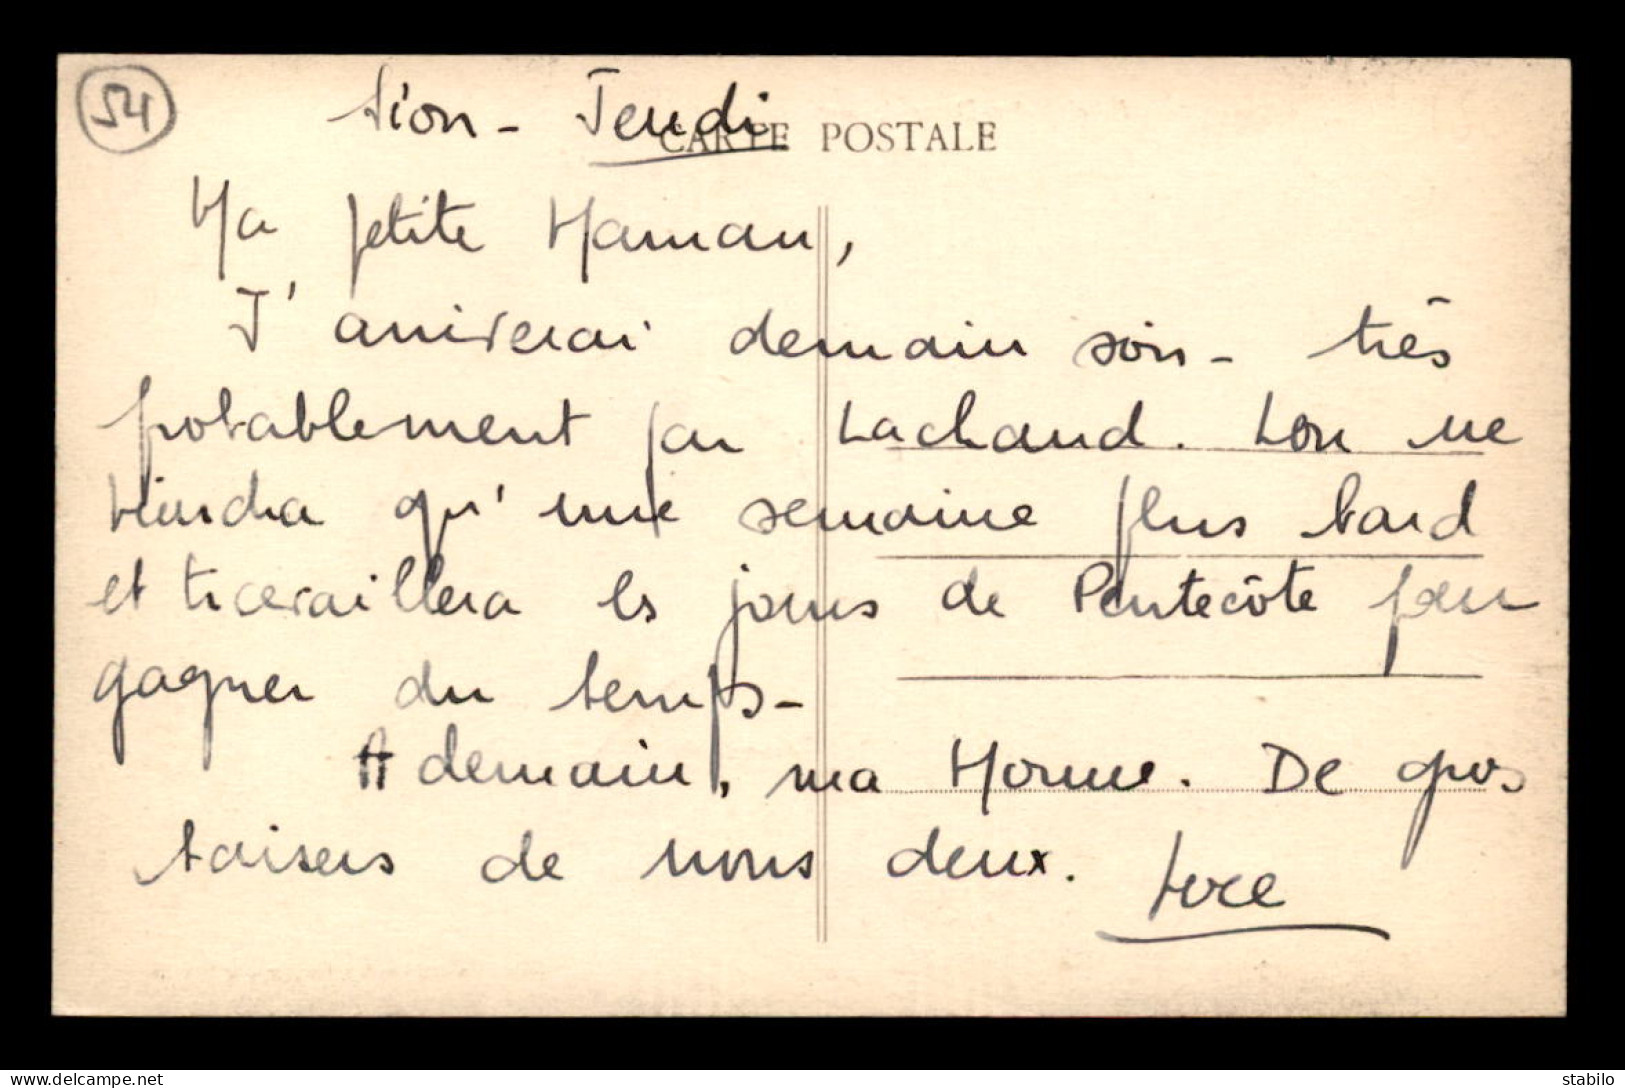 54
Sion - Jeudi
CARTE POSTALE
Ma petite Maman,
J'arriverai demain soir - très
probablement par Lachaud. Lou ne
viendra qu'une semaine plus tard
et travaillera les jours de Pentecôte pour
gagner du temps -
A demain, ma Moune. De gros
baisers de nous deux.
delcampe.net
stabilo